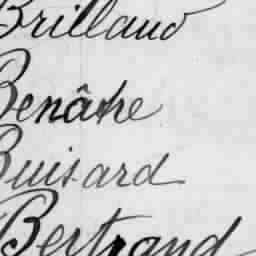 Brillaud
Benâtre
Buisard
Bertrand